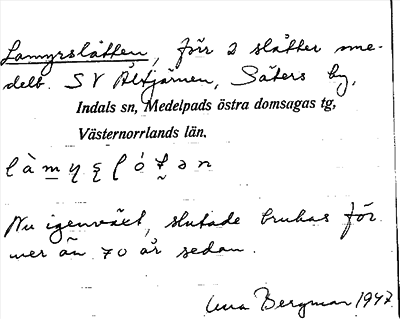 Lamyrslåtten, förr 2 slåtter me-
delb. SV Åltjärnen, Säters by,
Indals sn, Medelpads östra domsagas tg,
Västernorrlands län.
Nu igenväxt, slutade brukas för
mer än 70 år sedan.
Bergman 1947